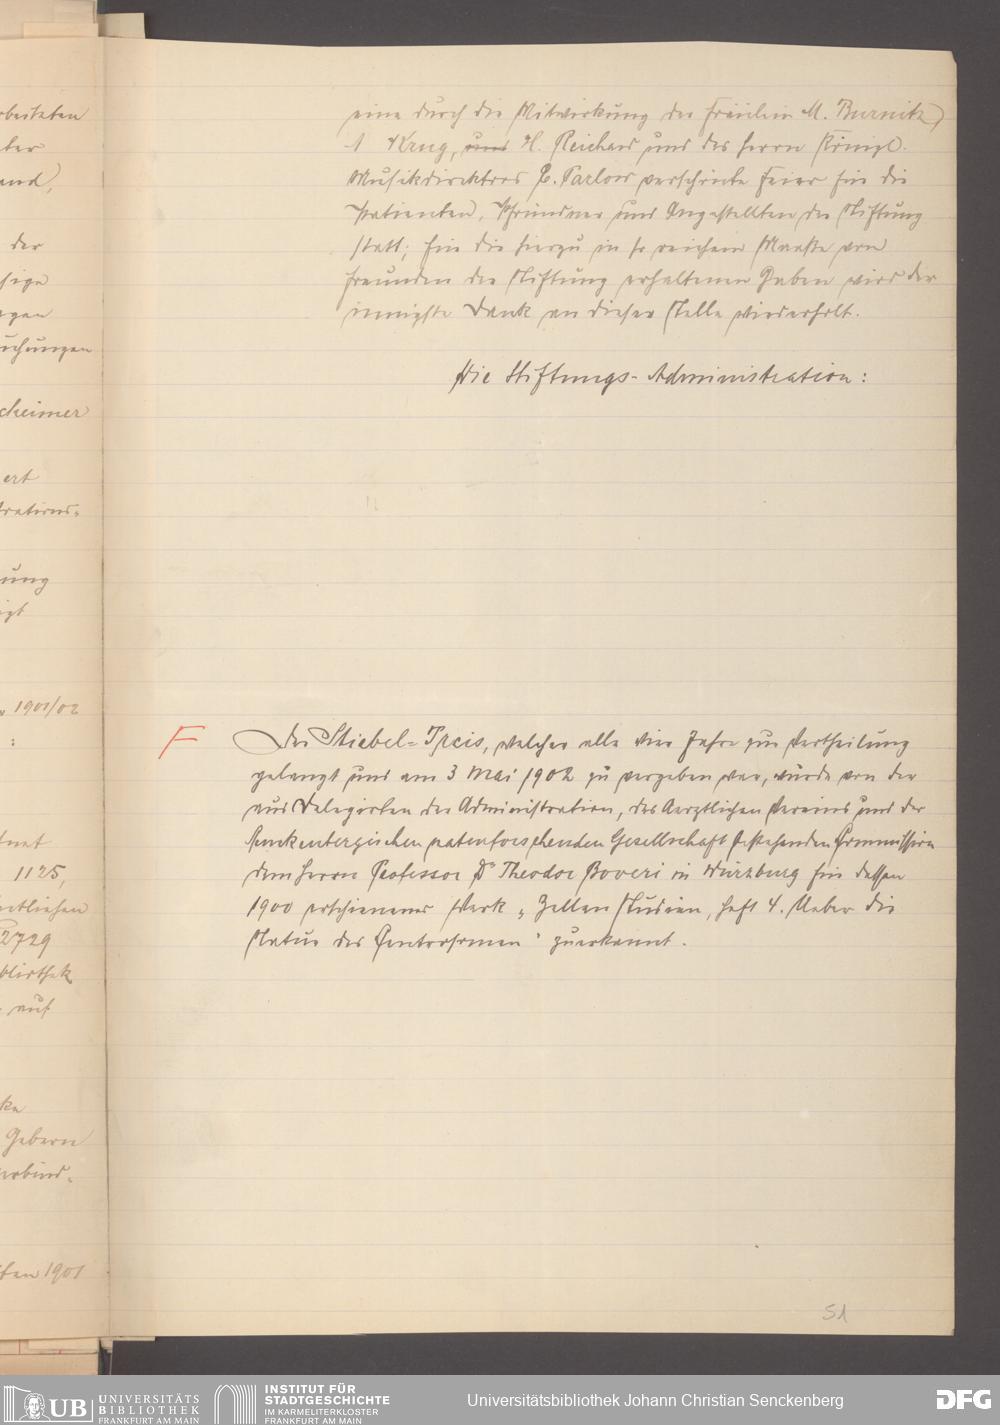 eine durch die Mitwirkung der Fräulein M. Burnitz,
A Krug, und H. Reichard und des Herrn Königl.
Musikdirektors E. Parlow verschönte Feier für die
Patienten, Pfründner und Angestellten der Stiftung
statt; für die hierzu in so reichem Maaße von
Freunden der Stiftung erhaltenen Gaben wird der
innigste Dank an dieser Stelle wiederholt.
Die Stiftungs-Administration:
F Der Stiebel-Preis, welcher alle vier Jahre zur Vertheilung
gelangt und am 3 Mai 1902 zu vergeben war, wurde von der
aus Delegirten der Administration, des Aerztlichen Vereins und der
Senckenbergischen naturforschenden Gesellschaft bestehenden Commission
dem Herrn Professor Dr Theodor Boveri in Würzburg für dessen
1900 erschienenes Werk „Zellen Studien, Heft 4. Ueber die
Natur der Centrosomen" zuerkannt.
51
rbeitaten
ter
and,
der
sige
ngen
uchungen
cheimer
ert
trations-
ung
igt
1901/02
:
1125,
ntlichen
2729
bliothek
auf
ke
Gebern
verbind-
ten 1901
UB UNIVERSITÄTS
BIBLIOTHEK
FRANKFURT AM MAIN
INSTITUT FÜR
STADTGESCHICHTE
IM KARMELITERKLOSTER
FRANKFURT AM MAIN
Universitätsbibliothek Johann Christian Senckenberg
DFG